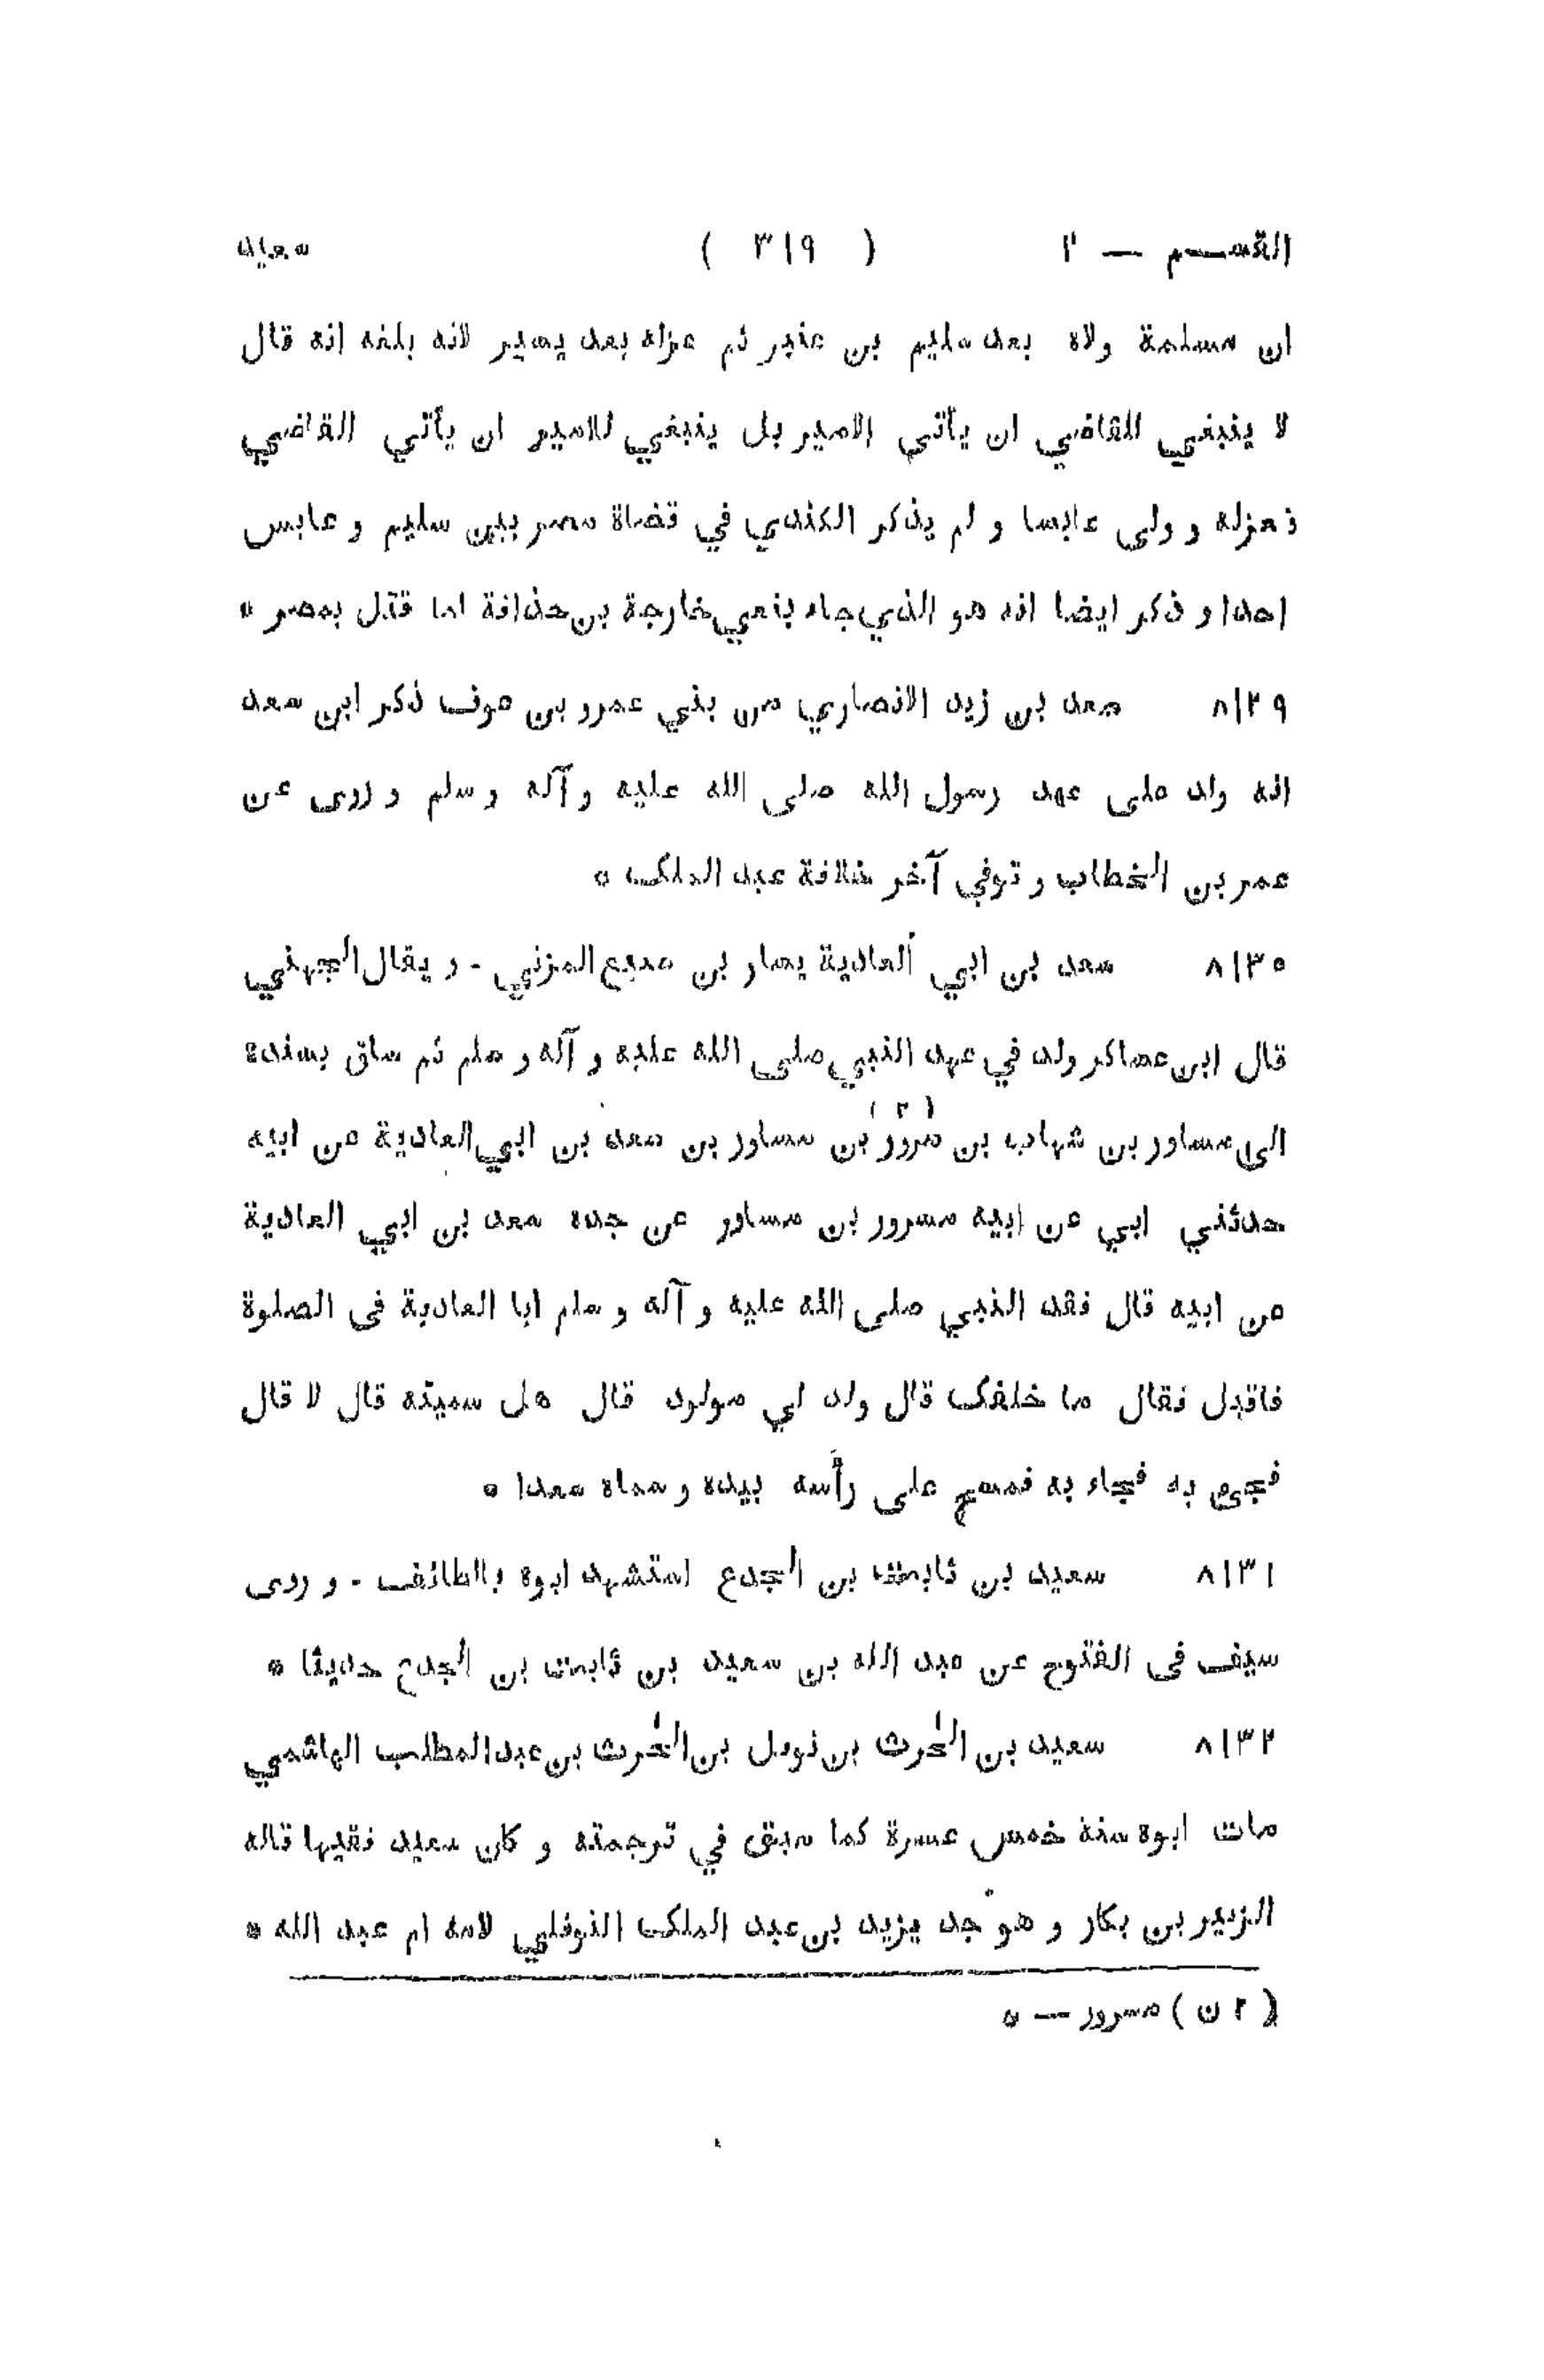 القسم — ٢ ( ٣١٩ ) سعيد
ان مسلمة ولاه بعد سليم بن عنبر ثم عزله بعد يسير لانه بلغه انه قال
لا ينبغي للقاضي ان يأتى الامير بل ينبغي للامير ان يأتي القاضي
فعزله و ولى عابسا و لم يذكر الكندي في قضاة مصر بين سليم و عابس
احدا و ذكر ايضا انه هو الذي جاء بنعي خارجة بن حذافة لما قتل بمصر *
٨١٢٩ سعد بن زيد الانصاري من بني عمرو بن عوف ذكر ابن سعد
انه ولد على عهد رسول الله صلى الله عليه و آله و سلم و روى عن
عمر بن الخطاب و توفي آخر خلافة عبد الملك *
٨١٣٠ سعد بن ابي العادية يسار بن سبع المزني - و يقال الجهني
قال ابن عساكر ولد في عهد النبي صلى الله عليه و آله و سلم ثم ساق بسنده
الى مساور بن شهاب بن سرور (٢) بن مساور بن سعد بن ابي العادية عن ابيه
حدثني ابي عن ابيه مسرور بن مساور عن جده سعد بن ابي العادية
عن ابيه قال فقد النبي صلى الله عليه و آله و سلم ابا العادية فى الصلوة
فاقبل فقال ما خلفك قال ولد لي مولود قال هل سميته قال لا قال
فجيء به فجاء به فمسح على رأسه بيده و سماه سعدا *
٨١٣١ سعيد بن ثابت بن الجدع استشهد ابوه بالطائف - و روى
سيف فى الفتوح عن عبد الله بن سعيد بن ثابت بن الجدع حديثا *
٨١٣٢ سعيد بن الحرث بن نوفل بن الحرث بن عبد المطلب الهاشمي
مات ابوه سنة خمس عسرة كما سبق في ترجمته و كان سعيد فقيها قاله
الزبير بن بكار و هو جد يزيد بن عبد الملك النوفلي لامه ام عبد الله *
( ٢ ن ) مسرور — *